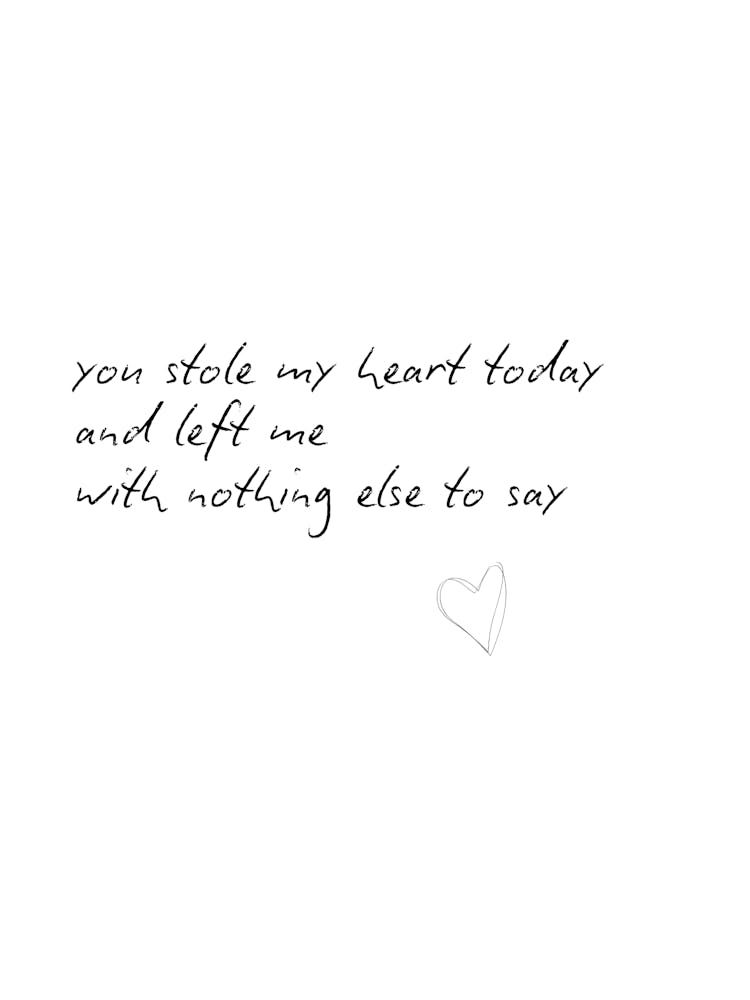 you stole my heart today
and left me
with nothing else to say